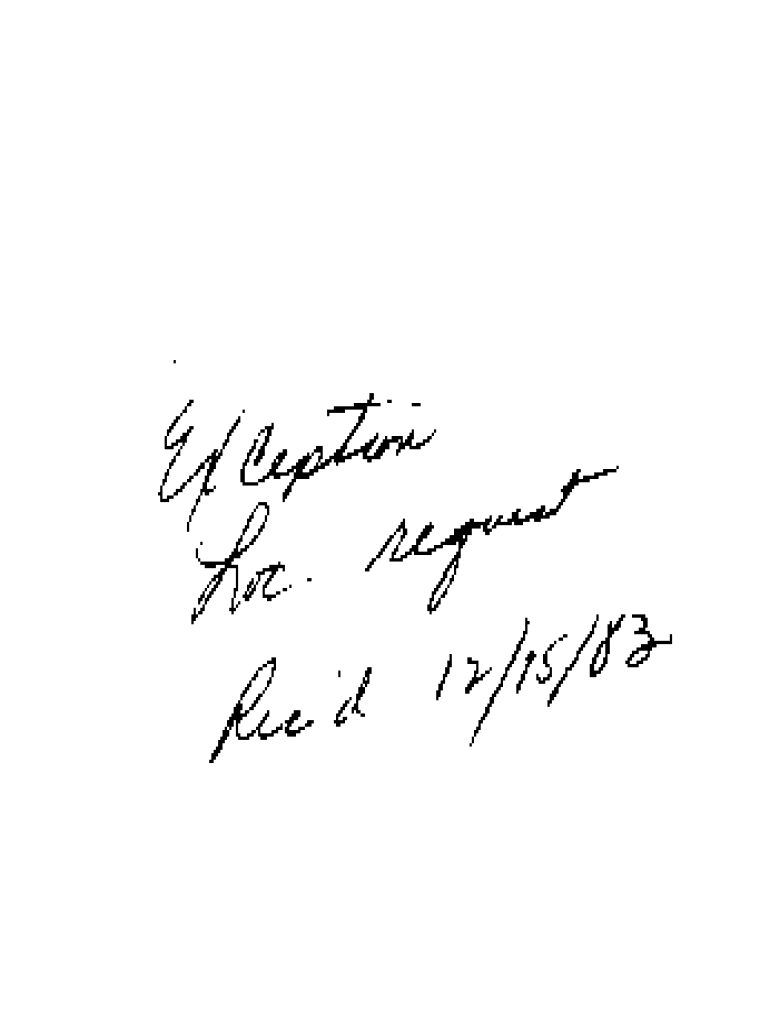 Exception
Loc. request
Rec'd 12/15/83